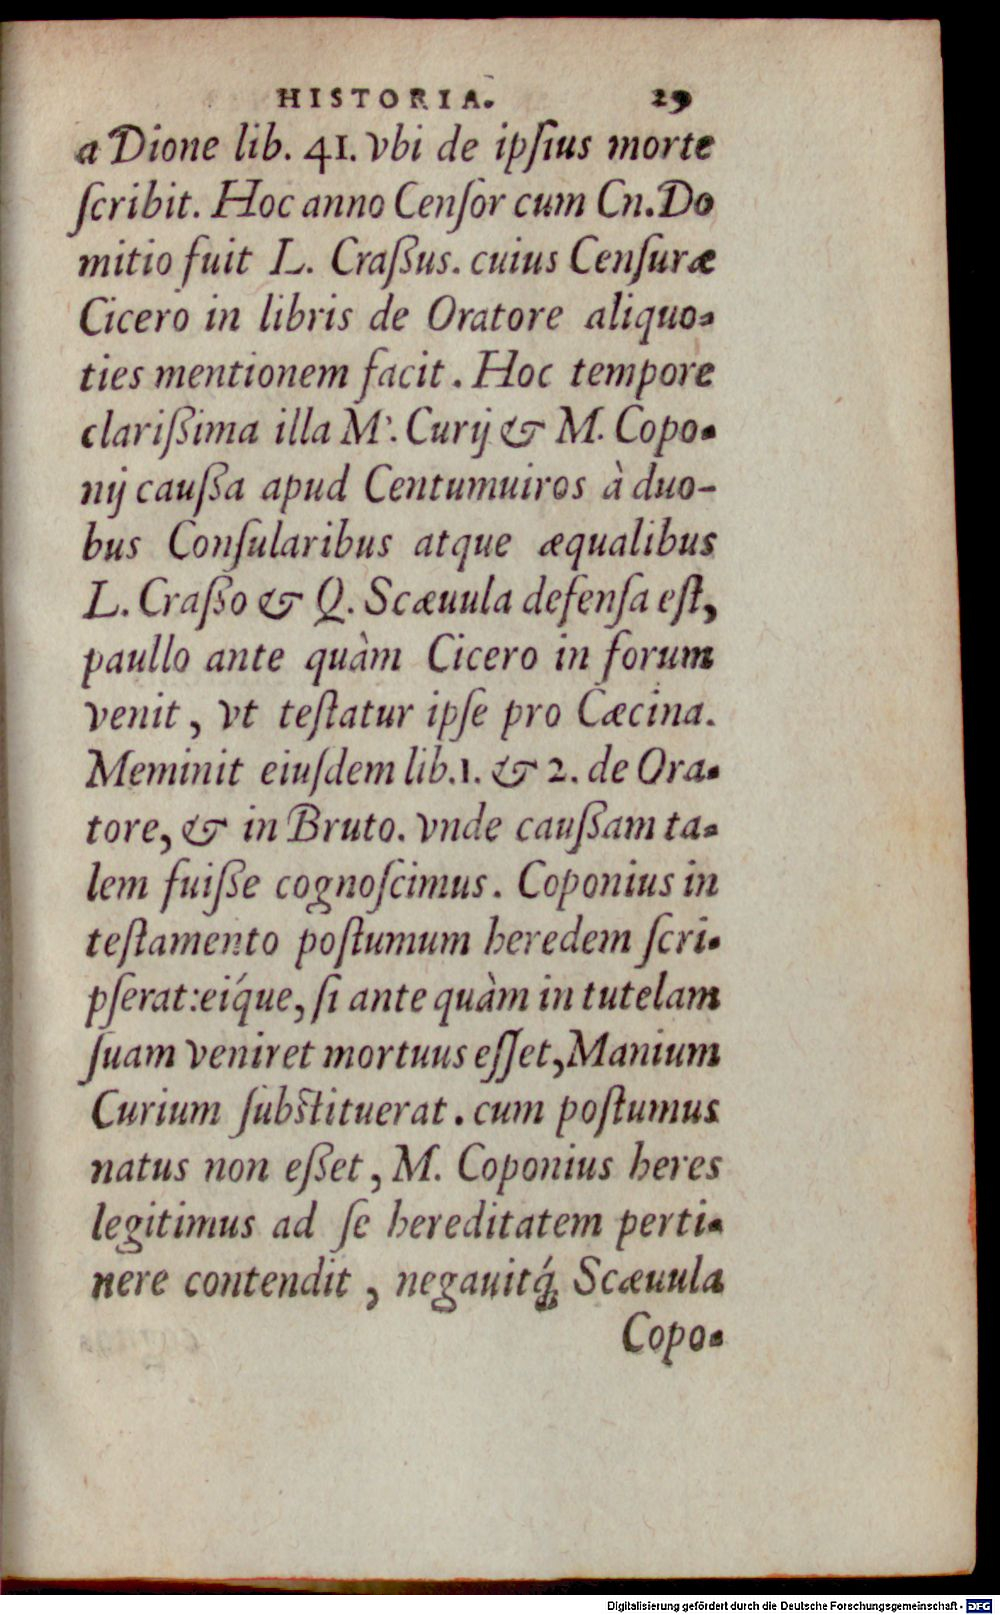 HISTORIA. 29
a Dione lib. 41. vbi de ipſius morte
ſcribit. Hoc anno Cenſor cum Cn. Do
mitio fuit L. Craßus. cuius Cenſuræ
Cicero in libris de Oratore aliquo-
ties mentionem facit. Hoc tempore
clarißima illa M'. Curij & M. Copo-
nij caußa apud Centumuiros à duo-
bus Conſularibus atque æqualibus
L. Craßo & Q. Scæuula defenſa eſt,
paullo ante quàm Cicero in forum
venit, vt teſtatur ipſe pro Cæcina.
Meminit eiuſdem lib. 1. & 2. de Ora-
tore, & in Bruto. vnde caußam ta-
lem fuiße cognoſcimus. Coponius in
teſtamento poſtumum heredem ſcri-
pſerat: eíque, ſi ante quàm in tutelam
ſuam veniret mortuus eſſet, Manium
Curium ſubſtituerat. cum poſtumus
natus non eßet, M. Coponius heres
legitimus ad ſe hereditatem perti-
nere contendit, negauitq́; Scæuula
Copo-
Digitalisierung gefördert durch die Deutsche Forschungsgemeinschaft - DFG